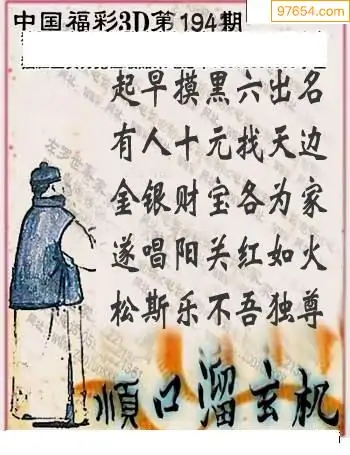 中国福彩3D第194期
97654.com
起早摸黑六出名
有人十元找天边
金银财宝各为家
遂唱阳关红如火
松斯乐不吾独尊
顺口溜玄机